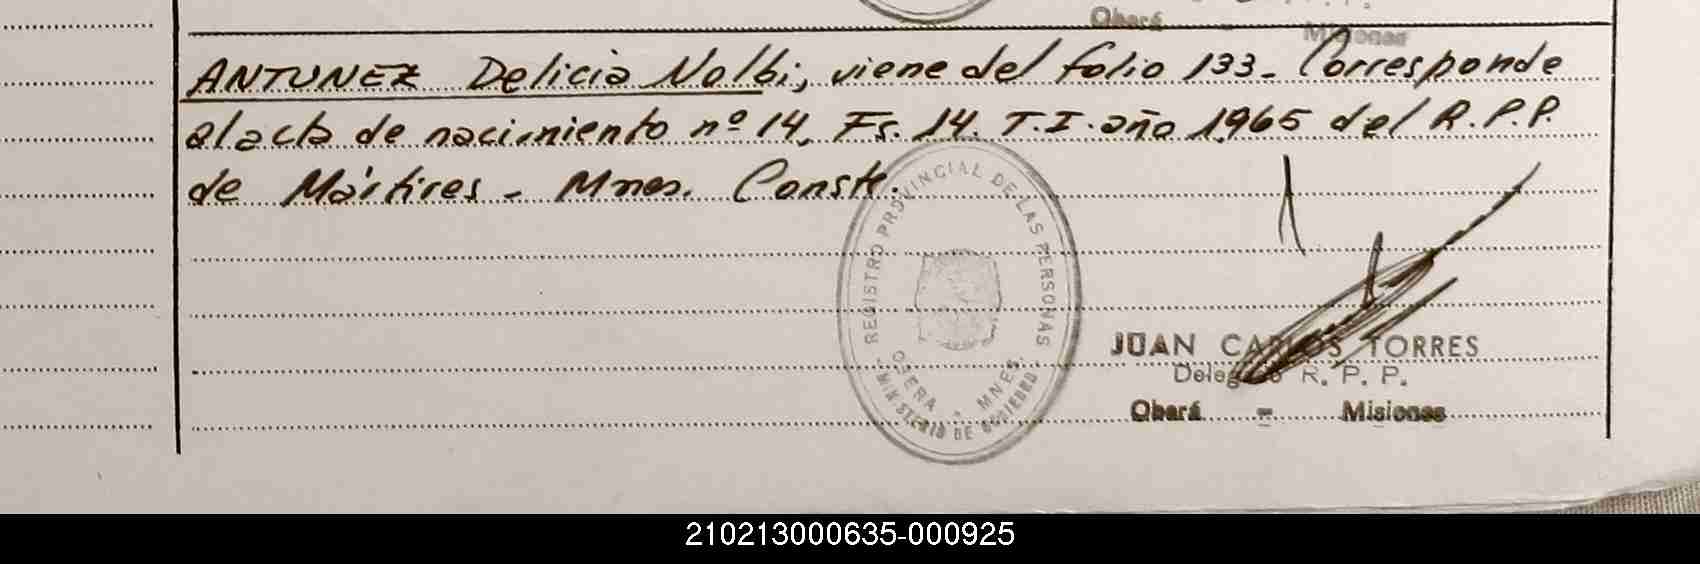 Oberá - Misiones
ANTUNEZ Delicia Nalbi, viene del folio 133 - Corresponde
al acta de nacimiento nº 14, Fs. 14. T.I. año 1965 del R.P.P.
de Mártires - Mnes. Conste.
REGISTRO PROVINCIAL DE LAS PERSONAS
OBERA - MNES.
MINISTERIO DE GOBIERNO
JUAN CARLOS TORRES
Delegado R. P. P.
Oberá - Misiones
210213000635-000925